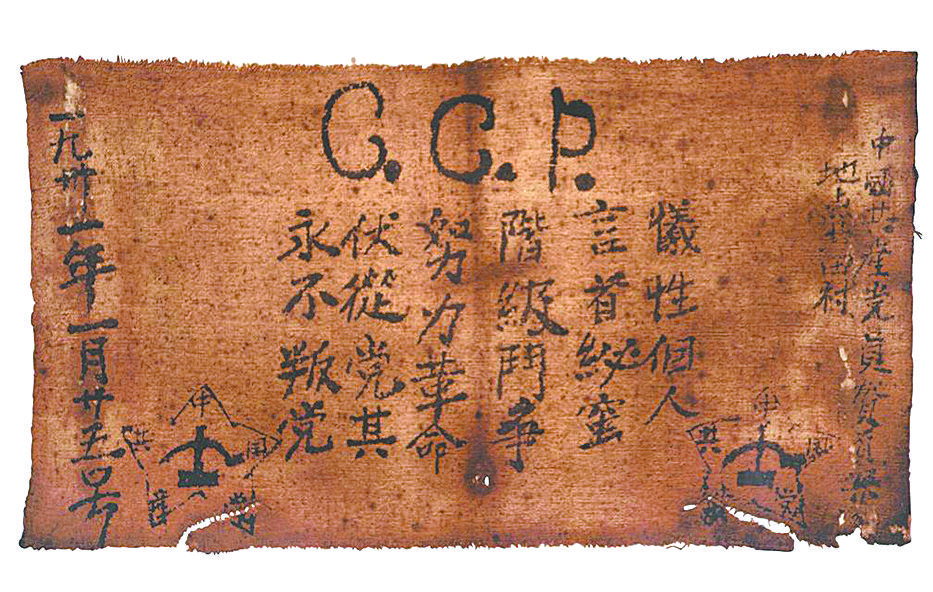 C.C.P.
中國共產党員
地点北田村
犧牲個人
言首秘蜜
階級鬥爭
努力革命
伏從党其
永不叛党
一九卅一年一月廿五号
中
國
共
中
國
共